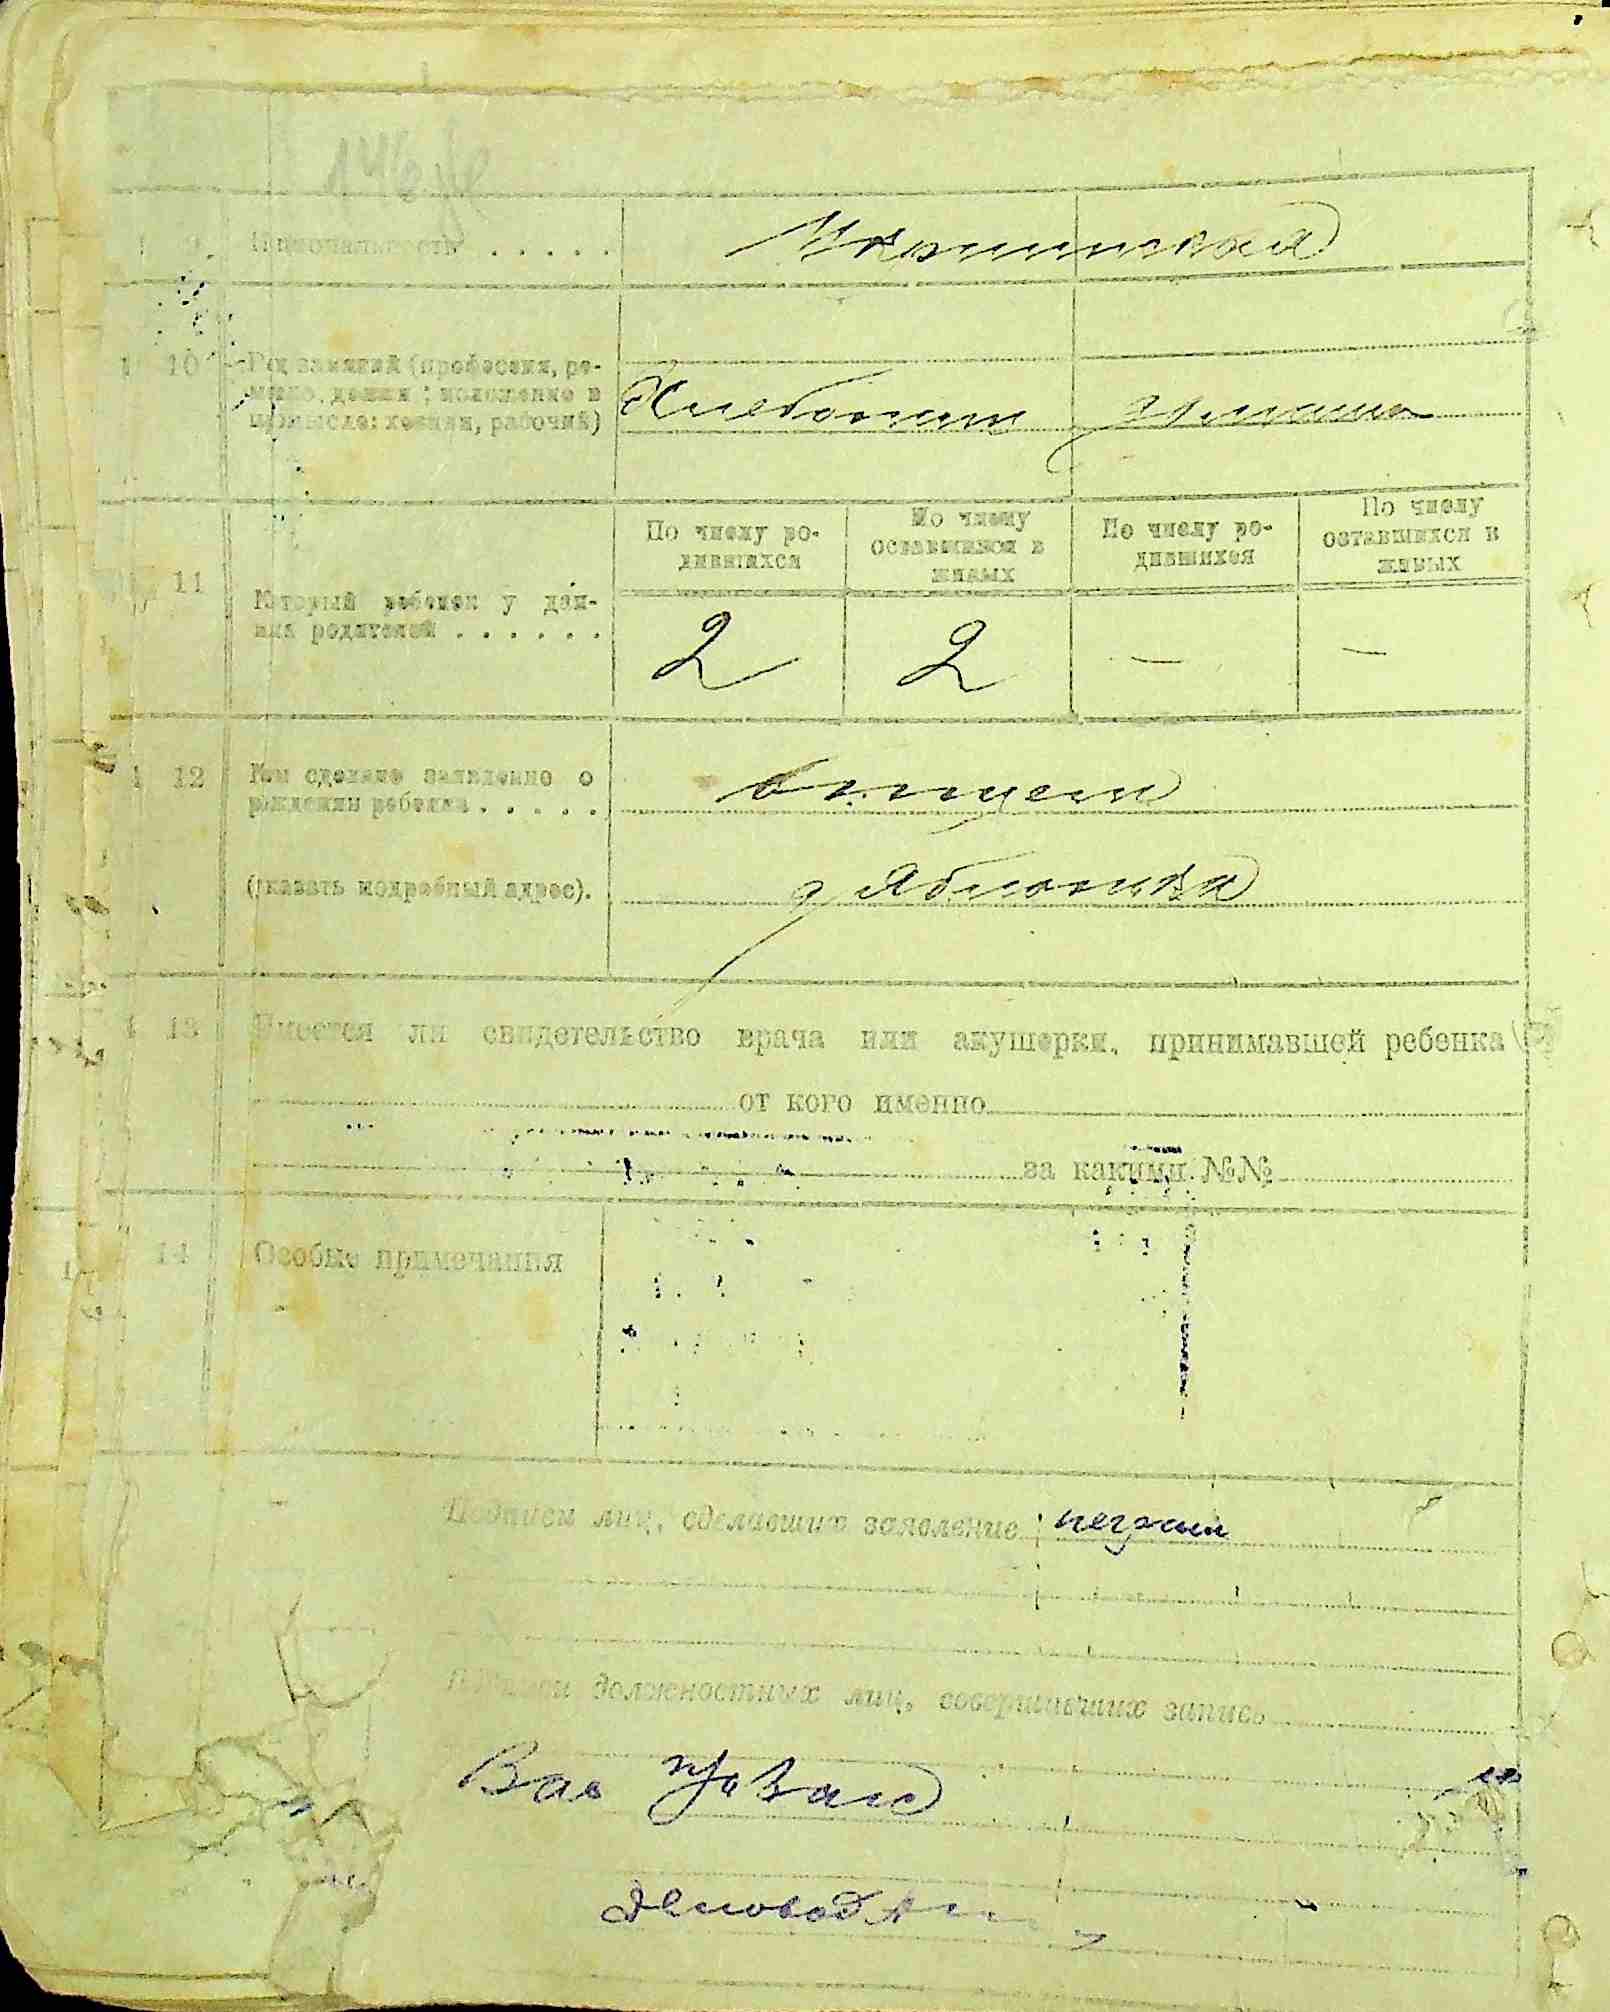 9 Национальность . . . . .
Украинская
10 Род занятий (профессия, ре-
месло, должн.; положение в
промысле: хозяин, рабочий)
Хлебопаш
По числу ро-
дившихся
По числу
оставшихся в
живых
По числу ро-
дившихся
По числу
оставшихся в
живых
11 Который ребенок у дан-
ных родителей . . . . . .
2 2 — —
12 Кем сделано заявление о
рождении ребенка . . . . .
отцем
(указать подробный адрес).
д Яблоновка
13 Имеется ли свидетельство врача или акушерки, принимавшей ребенка
от кого именно
за какими №№
14 Особые примечания
Подписи лиц, сделавших заявление: неграм
Подписи должностных лиц, совершивших запись
Деловод